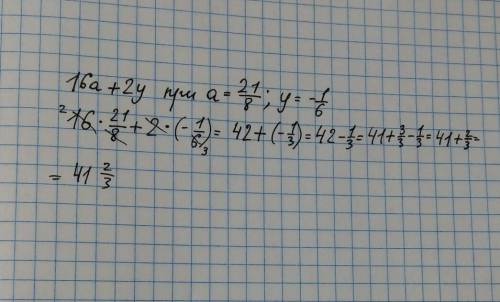 16a + 2y при a = 21/8; y = -1/6
² 16 · 21/8 + 2 · (-1/6 ₃) = 42 + (-1/3) = 42 - 1/3 = 41 + 3/3 - 1/3 = 41 + 2/3 =
= 41 2/3